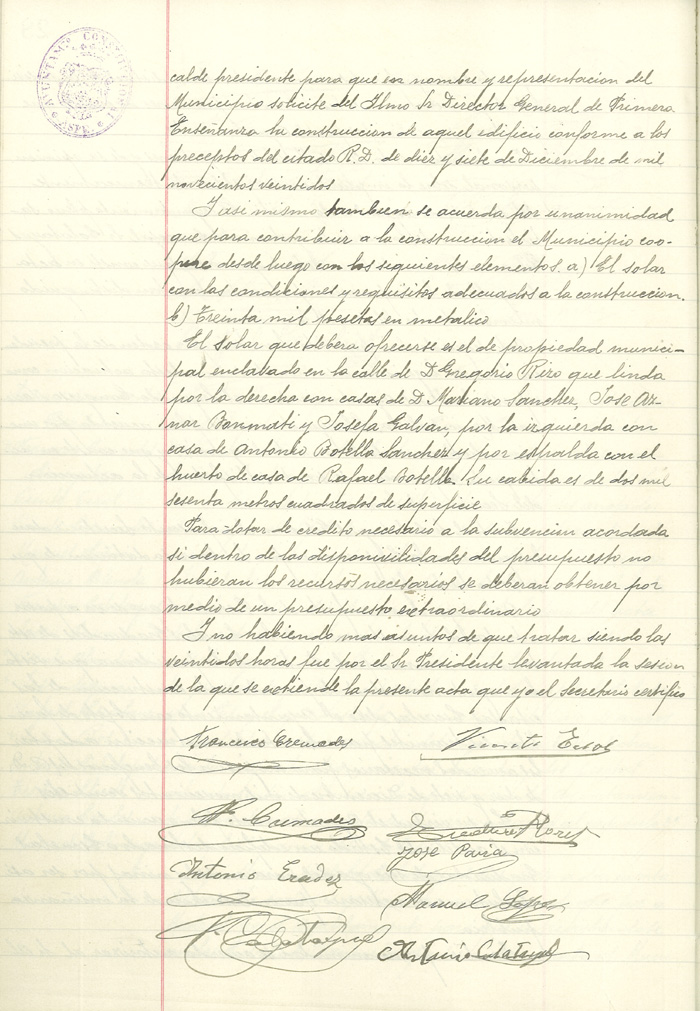 AYUNTAM.º CONSTITUCIONAL
ASPE
calde presidente para que en nombre y representacion del
Municipio solicite del Ilmo Sr Director General de Primera
Enseñanza la construccion de aquel edificio conforme a los
preceptos del citado R.D. de diez y siete de Diciembre de mil
novecientos veintidos
Y asi mismo tambien se acuerda por unanimidad
que para contribuir a la construccion el Municipio coo-
pere desde luego con los siguientes elementos. a) El solar
con las condiciones y requisitos adecuados a la construccion.
b) Treinta mil pesetas en metalico
El solar que debera ofrecerse es el de propiedad munici-
pal enclavado en la calle de D Gregorio Rizo que linda
por la derecha con casas de D. Mariano Sanchez, Jose Az-
nar Bonmati y Josefa Galvan, por la izquierda con
casa de Antonio Botella Sanchez y por espalda con el
huerto de casa de Rafael Botella. Su cabida es de dos mil
sesenta metros cuadrados de superficie
Para dotar de credito necesario a la subvencion acordada
si dentro de las disponivilidades del presupuesto no
hubieran los recursos necesarios se deberan obtener por
medio de un presupuesto extraordinario
Y no habiendo mas asuntos de que tratar siendo las
veintidos horas fue por el Sr Presidente levantada la sesion
de la que se extiende la presente acta que yo el Secretario certifico
Francisco Cremades
Vicente
Cremades
Jose Pavia
Antonio
Manuel Lopez
Antonio Calatayud